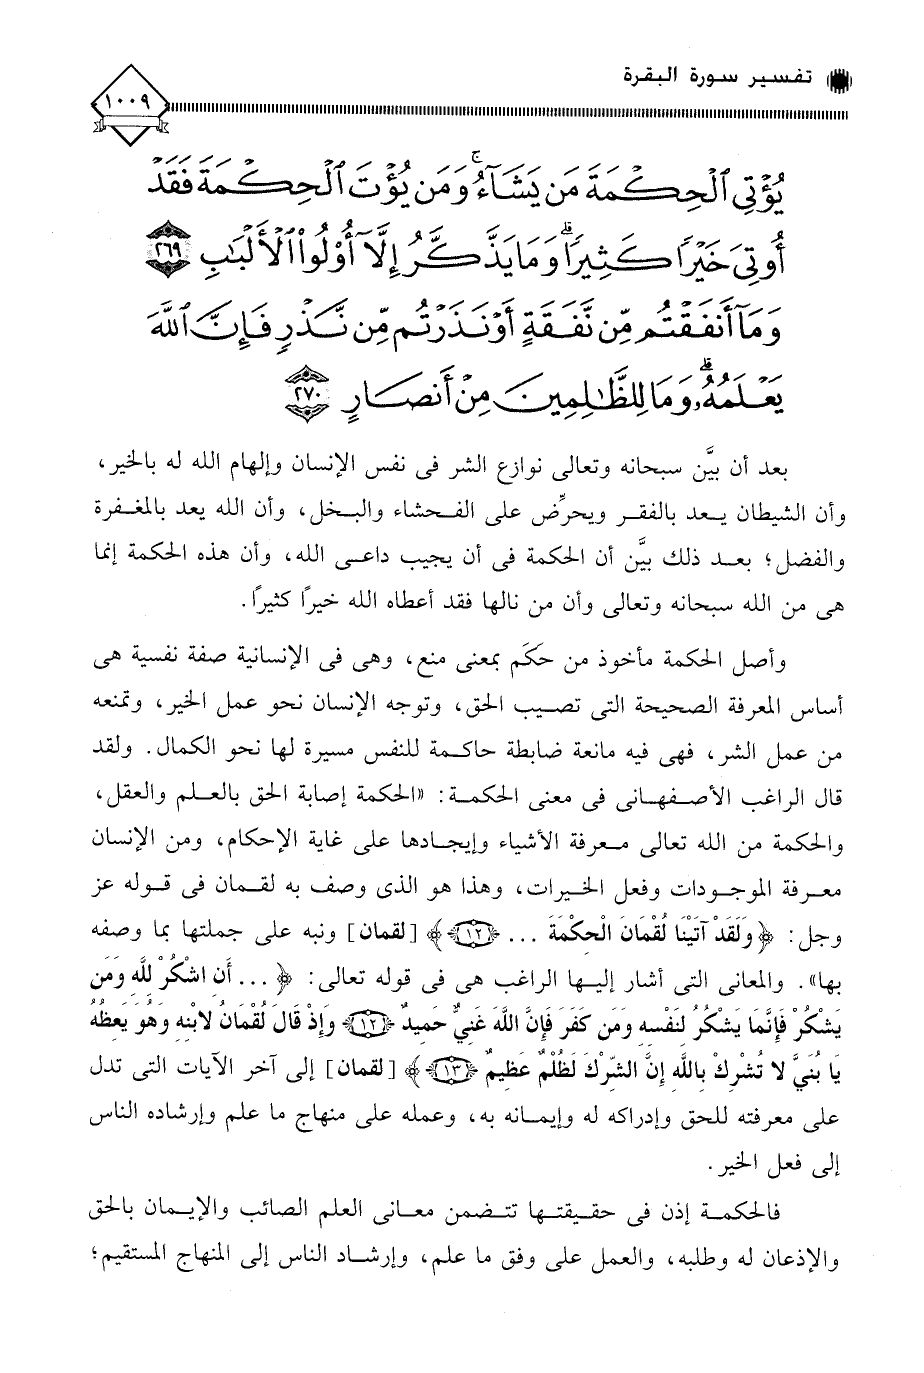 تفسير سورة البقرة
١٠٠٩
يُؤْتِي ٱلْحِكْمَةَ مَن يَشَآءُ ۚ وَمَن يُؤْتَ ٱلْحِكْمَةَ فَقَدْ
أُوتِيَ خَيْرًا كَثِيرًا ۗ وَمَا يَذَّكَّرُ إِلَّآ أُوْلُواْ ٱلْأَلْبَٰبِ ٢٦٩
وَمَآ أَنفَقْتُم مِّن نَّفَقَةٍ أَوْ نَذَرْتُم مِّن نَّذْرٍ فَإِنَّ ٱللَّهَ
يَعْلَمُهُۥ ۗ وَمَا لِلظَّٰلِمِينَ مِنْ أَنصَارٍ ٢٧٠
بعد أن بيَّن سبحانه وتعالى نوازع الشر فى نفس الإنسان وإلهام الله له بالخير،
وأن الشيطان يعد بالفقر ويحرِّض على الفحشاء والبخل، وأن الله يعد بالمغفرة
والفضل؛ بعد ذلك بيَّن أن الحكمة فى أن يجيب داعى الله، وأن هذه الحكمة إنما
هى من الله سبحانه وتعالى وأن من نالها فقد أعطاه الله خيرًا كثيرًا.
وأصل الحكمة مأخوذ من حكَم بمعنى منع، وهى فى الإنسانية صفة نفسية هى
أساس المعرفة الصحيحة التى تصيب الحق، وتوجه الإنسان نحو عمل الخير، وتمنعه
من عمل الشر، فهى فيه مانعة ضابطة حاكمة للنفس مسيرة لها نحو الكمال. ولقد
قال الراغب الأصفهانى فى معنى الحكمة: «الحكمة إصابة الحق بالعلم والعقل،
والحكمة من الله تعالى معرفة الأشياء وإيجادها على غاية الإحكام، ومن الإنسان
معرفة الموجودات وفعل الخيرات، وهذا هو الذى وصف به لقمان فى قوله عز
وجل: ﴿وَلَقَدْ آتَيْنَا لُقْمَانَ الْحِكْمَةَ ... ﴿١٢﴾﴾ [لقمان] ونبه على جملتها بما وصفه
بها». والمعانى التى أشار إليها الراغب هى فى قوله تعالى: ﴿ ... أَنِ اشْكُرْ لِلَّهِ وَمَن
يَشْكُرْ فَإِنَّمَا يَشْكُرُ لِنَفْسِهِ وَمَن كَفَرَ فَإِنَّ اللَّهَ غَنِيٌّ حَمِيدٌ ﴿١٢﴾ وَإِذْ قَالَ لُقْمَانُ لابْنِهِ وَهُوَ يَعِظُهُ
يَا بُنَيَّ لا تُشْرِكْ بِاللَّهِ إِنَّ الشِّرْكَ لَظُلْمٌ عَظِيمٌ ﴿١٣﴾﴾ [لقمان] إلى آخر الآيات التى تدل
على معرفته للحق وإدراكه له وإيمانه به، وعمله على منهاج ما علم وإرشاده الناس
إلى فعل الخير.
فالحكمة إذن فى حقيقتها تتضمن معانى العلم الصائب والإيمان بالحق
والإذعان له وطلبه، والعمل على وفق ما علم، وإرشاد الناس إلى المنهاج المستقيم؛